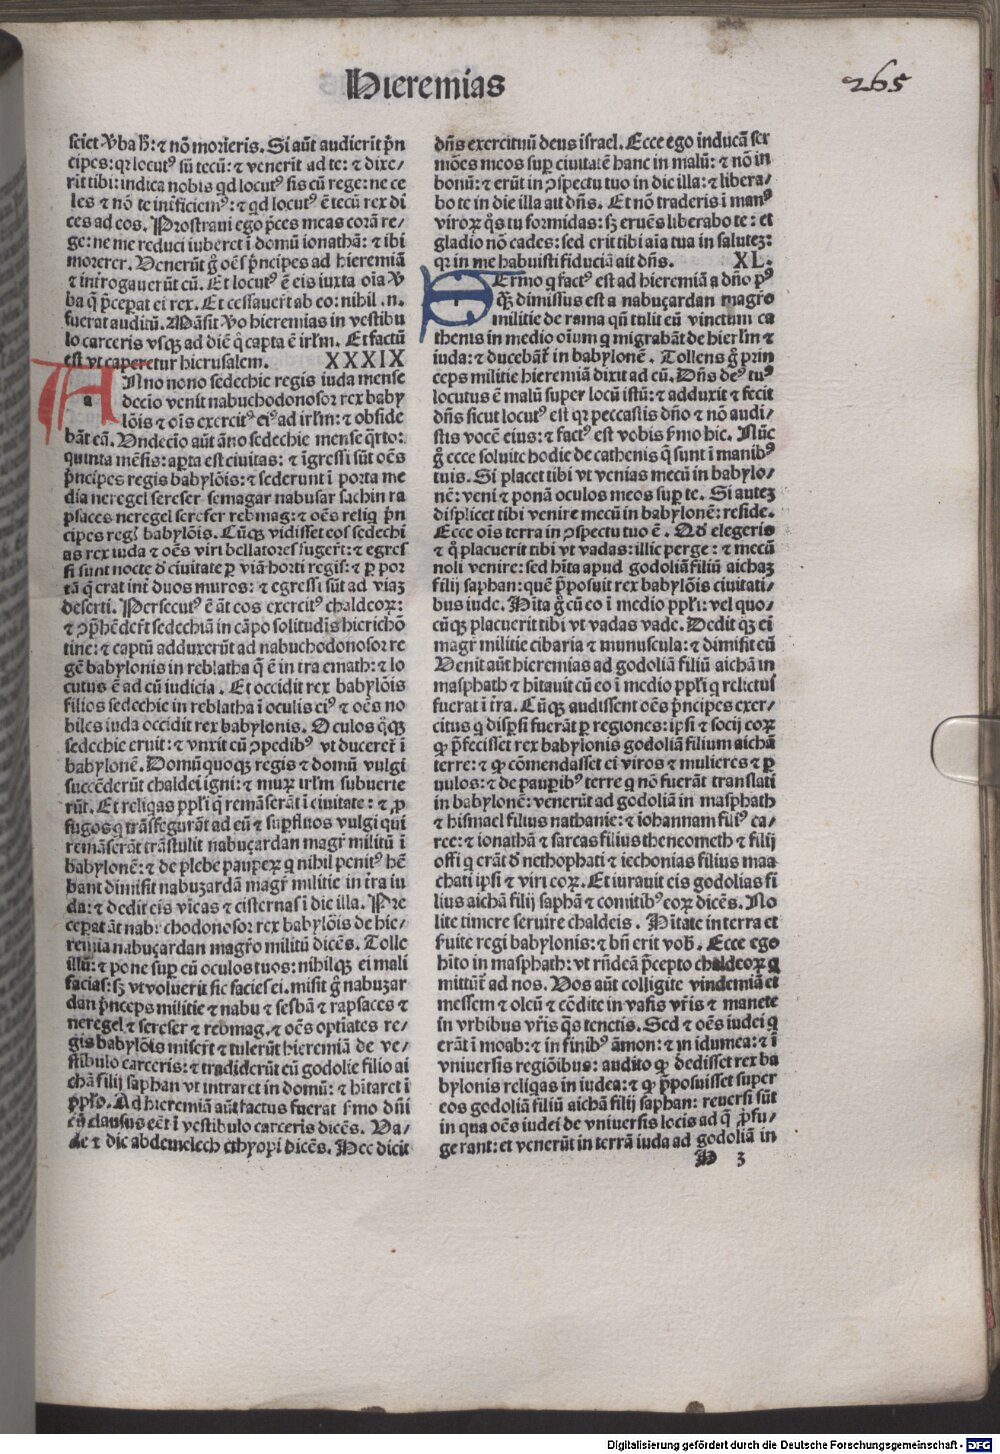 Hieremias
265
sciet v̄ba h̄: ⁊ nō moriēris. Si aūt audierīt p̄n
cipes: qꝛ locutꝰ sū tecū: ⁊ venerīt ad te: ⁊ dixe/
rīt tibi: indica nobis qd locutꝰ sis cū rege: ne ce
les ⁊ nō te int̄ficiemꝰ: ⁊ qd locutꝰ ē tecū rex di
ces ad eos. Prostraui ego p̄ces meas corā re/
ge: ne me reduci iuberet ī domū ionathā: ⁊ ibi
morerer. Venerūt g̊ oēs p̄ncipes ad hieremiā
⁊ introgauerūt eū. Et locutꝰ ē eis iuxta oīa v̄
ba q̄ p̄ceperat ei rex. Et cessauerūt ab eo: nihil .n.
fuerat auditū. Māsit v̄o hieremias in vestibu
lo carceris vsqꝫ ad diē q̄ capta ē irl̄m. Et factū
est vt caperetur hierusalem. XXXIX
ANno nono sedechie regis iuda mense
a
decīo venit nabuchodonosor rex baby
lōis ⁊ oīs exercitꝰ eiꝰ ad irl̄m: ⁊ obside
bāt eā. Vndecīo aūt āno sedechie mense q̄rto:
quinta mēsis: apta est ciuitas: ⁊ īgressi sūt oēs
p̄ncipes regis babylōis: ⁊ sederunt ī porta me
dia neregel sereser semagar nabusar sachin ra
psaces neregel sereser rebmag: ⁊ oēs reliq p̄n
cipes regꝭ babylōis. Cūqꝫ vidisset eos sedechi
as rex iuda ⁊ oēs viri bellatores fugerūt: ⁊ egres
si sunt nocte d̄ ciuitate ꝑ viā horti regis: ⁊ ꝑ por
tā q̄ erat int̄ duos muros: ⁊ egressi sūt ad viaꝫ
deserti. Persecutꝰ ē āt eos exercitꝰ chaldeoꝝ:
⁊ ꝯp̄hēder̄t sedechiā in cāpo solitudīs hiericho
tine: ⁊ captū adduxerūt ad nabuchodonosor re
gē babylonis in reblatha q̄ ē in tra emath: ⁊ lo
cutus ē ad eū iudicia. Et occidit rex babylōis
filios sedechie in reblatha ī oculis eiꝰ ⁊ oēs no
biles iuda occidit rex babylonis. Oculos q̄qꝫ
sedechie eruit: ⁊ vīxit eū ꝯpedibꝰ vt duceret ī
babylonē. Domū quoqꝫ regis ⁊ domū vulgi
succēderūt chaldei igni: ⁊ muꝝ irl̄m subuerte
rūt. Et reliqas ppl̄i q̄ remāserāt ī ciuitate: ⁊ ꝓ
fugos q trāsfugerāt ad eū ⁊ supfluos vulgi qui
remāserāt trāstulit nabuçardan magr̄ militū ī
babylonē: ⁊ de plebe paupeꝝ q nihil penitꝰ hē
bant dimisit nabuzardā magr̄ militie in tra iu
da: ⁊ dedit eis vīeas ⁊ cisternas ī die illa. Pre
ceperat āt nabuchodonosor rex babylōis de hie/
remia nabuçardan magr̄o militū dicēs. Tolle
illū: ⁊ pone sup eū oculos tuos: nihilqꝫ ei mali
facias: sꝫ vt voluerit sic facies ei. misit g̊ nabuzar
dan p̄nceps militie ⁊ nabu ⁊ sesbā ⁊ rapsaces ⁊
neregel ⁊ sereser ⁊ rebmag, ⁊ oēs optiates re/
gis babylōis miser̄t ⁊ tulerūt hieremiā de ve/
stibulo carceris: ⁊ tradiderūt eū godolie filio ai
chā filij saphan vt intraret in domū: ⁊ hītaret ī
ppl̄o. Ad hieremiā aūt factus fuerat s̄mo dn̄i
cū clausus eēt ī vestibulo carceris dicēs. Va/
de ⁊ dic abdemelech ethyopi dicēs. Hec dicit
dn̄s exercituū deus israel. Ecce ego inducā ser
mōes meos sup ciuitatē hanc in malū: ⁊ nō in
bonū: ⁊ erūt in ꝯspectu tuo in die illa: ⁊ libera/
bo te in die illa ait dn̄s. Et nō traderis ī manꝰ
viroꝝ q̊s tu formidas: sꝫ eruēs liberabo te: et
gladio nō cades: sed erit tibi aīa tua in saluteꝫ:
qꝛ in me habuisti fiduciā ait dn̄s. XL.
SErmo q factꝰ est ad hieremiā a dn̄o pꝰ
qꝫ dimissus est a nabuçardan magr̄o
militie de rama qn̄ tulit eū vinctum ca
thenis in medio oīum q migrabāt de hierl̄m ⁊
iuda: ⁊ ducebāt̄ in babylonē. Tollens g̊ prin
ceps militie hieremiā dixit ad eū. Dn̄s deꝰ tuꝰ
locutus ē malū super locū istū: ⁊ adduxit ⁊ fecit
dn̄s sicut locutꝰ est qꝛ peccastis dn̄o ⁊ nō audi/
stis vocē eius: ⁊ factꝰ est vobis s̄mo hic. Nūc
g̊ ecce soluite hodie de cathenis q̄ sunt ī manibꝰ
tuis. Si placet tibi vt venias mecū in babylo/
nē: veni ⁊ ponā oculos meos sup te. Si auteꝫ
displicet tibi venire mecū in babylonē: reside.
Ecce oīs terra in ꝯspectu tuo ē. Qd elegeris
⁊ q̊ placuerit tibi vt vadas: illic perge: ⁊ mecū
noli venire: sed hīta apud godoliā filiū aichaꝫ
filij saphan: quē p̄posuit rex babylōis ciuitati/
bus iude. Hīta g̊ cū eo ī medio ppl̄i: vel quo/
cūqꝫ placuerit tibi vt vadas vade. Dedit qꝫ ei
magr̄ militie cibaria ⁊ munuscula: ⁊ dimisit eū
Venit aūt hieremias ad godoliā filiū aichā in
masphath ⁊ hītauit cū eo ī medio ppl̄i q relictus
fuerat ī tra. Cūqꝫ audissent oēs p̄ncipes exer/
citus q dispsi fuerāt ꝑ regiones: ipsi ⁊ socij eoꝝ
qꝙ p̄fecisset rex babylonis godoliā filium aichā
terre: ⁊ qꝙ cōmendasset ei viros ⁊ mulieres ⁊ ꝑ
uulos: ⁊ de paupibꝰ terre q nō fuerāt translati
in babylonē: venerūt ad godoliā in masphath
⁊ hismael filius nathanie: ⁊ iohannam filiꝰ ca/
ree: ⁊ ionathā ⁊ sarcas filius theneometh ⁊ filij
offi q erāt d̄ nethophati ⁊ iechonias filius maa
chati ipsi ⁊ viri eoꝝ. Et iurauit eis godolias fi
lius aichā filij saphā ⁊ comitibꝰ eoꝝ dicēs. No
lite timere seruire chaldeis. Hītate in terra et
s̄uite regi babylonis: ⁊ bn̄ erit vob̄. Ecce ego
hīto in masphath: vt rn̄deā p̄cepto chaldeoꝝ q
mittūt̄ ad nos. Vos aūt colligite vindemiā et
messem ⁊ oleū ⁊ cōdite in vasis vr̄is ⁊ manete
in vrbibus vr̄is q̄s tenetis. Sed ⁊ oēs iudei q
erāt ī moab: ⁊ in finibꝰ āmon: ⁊ in idumea: ⁊ ī
vniuersis regiōibus: audito qꝙ dedisset rex ba
bylonis reliqas in iudea: ⁊ qꝙ p̄posuisset super
eos godoliā filiū aichā filij saphan: reuersi sūt
in qua oēs iudei de vniuersis locis ad q̄ ꝓfu/
gerant: et venerūt in terrā iuda ad godoliā in
H 3
Digitalisierung gefördert durch die Deutsche Forschungsgemeinschaft - DFG